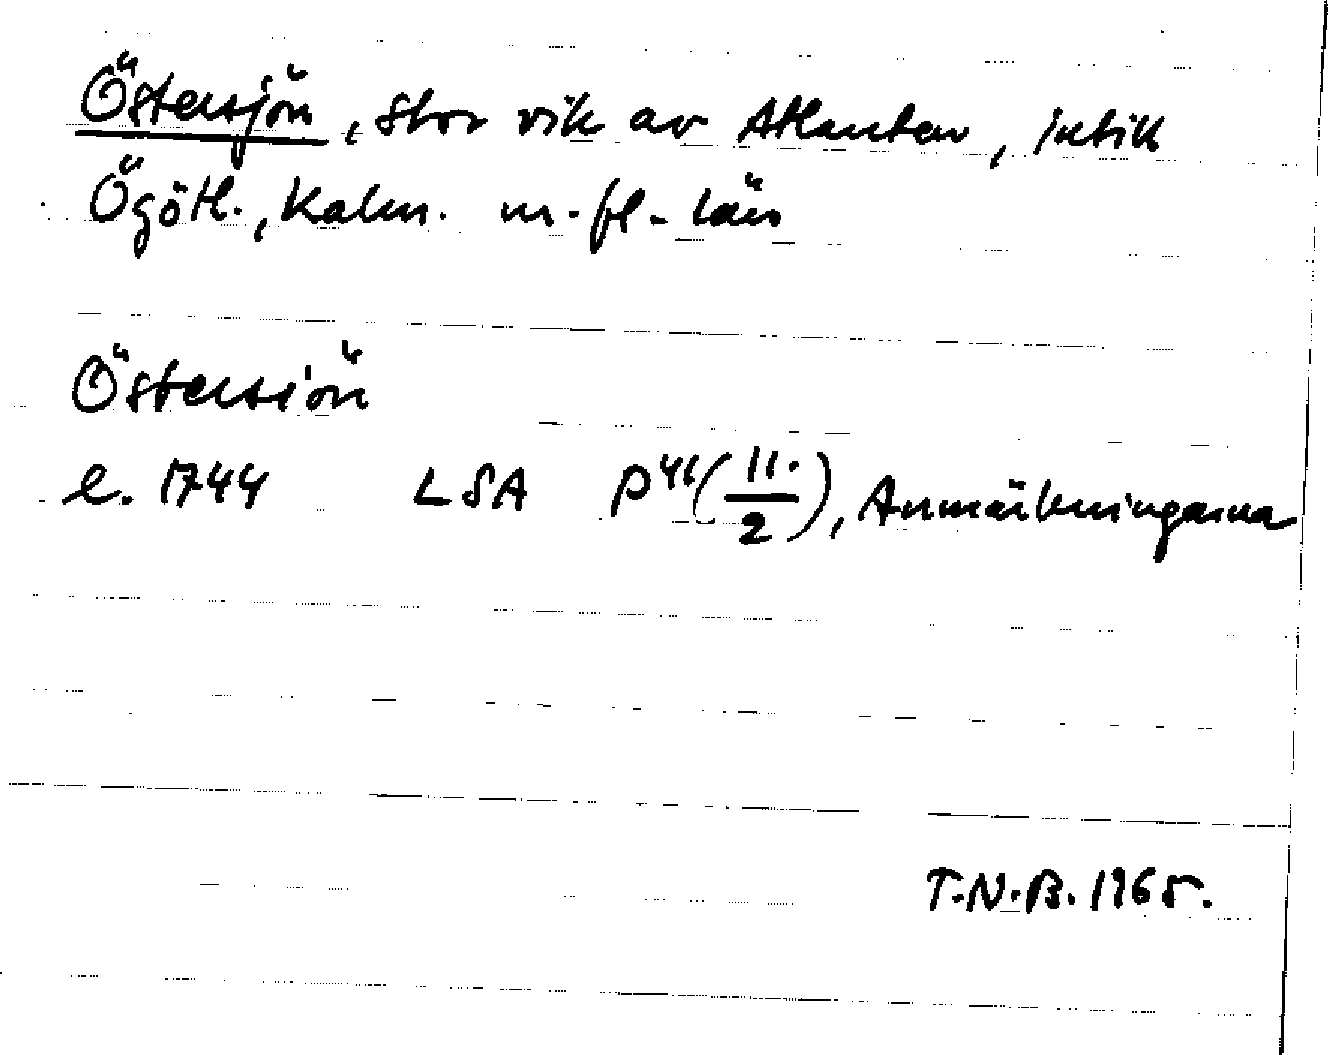 Östersjön, stor vik av Atlanten, intill
Ögötl., Kalm. m. fl. län
Östersiön
e. 1744 LSA P⁴¹(11./2), Anmärkningarna
T.N.B. 1965.